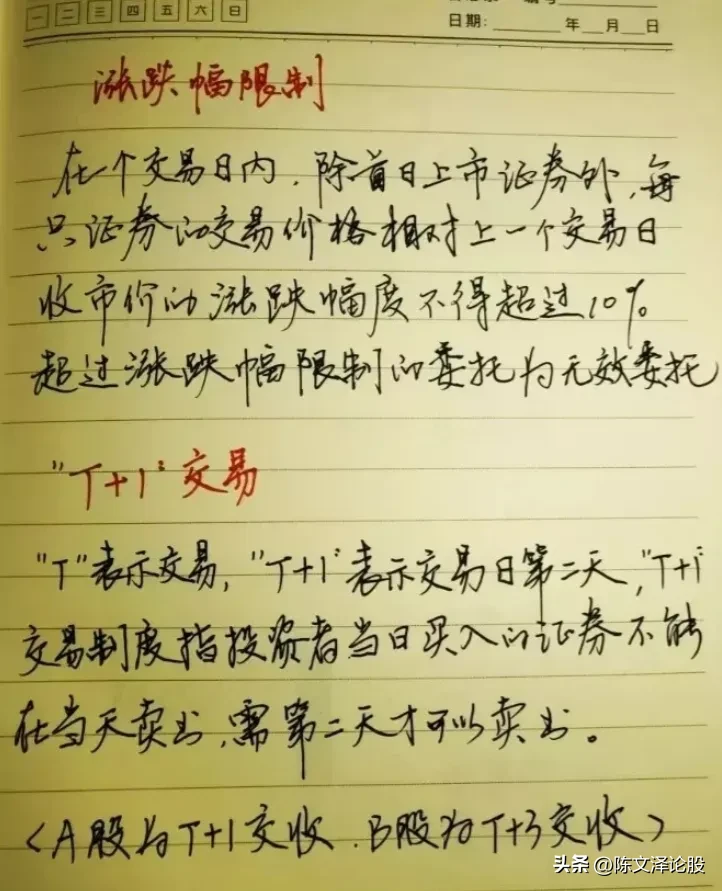 一 二 三 四 五 六 日
日期: 年 月 日
涨跌幅限制
在一个交易日内，除首日上市证券外，每
只证券的交易价格相对上一个交易日
收市价的涨跌幅度不得超过10%
超过涨跌幅限制的委托为无效委托
"T+1"交易
"T"表示交易，"T+1"表示交易日第二天，"T+1"
交易制度指投资者当日买入的证券不能
在当天卖出，需第二天才可以卖出。
〈A股为T+1交收．B股为T+3交收〉
头条 @陈文泽论股